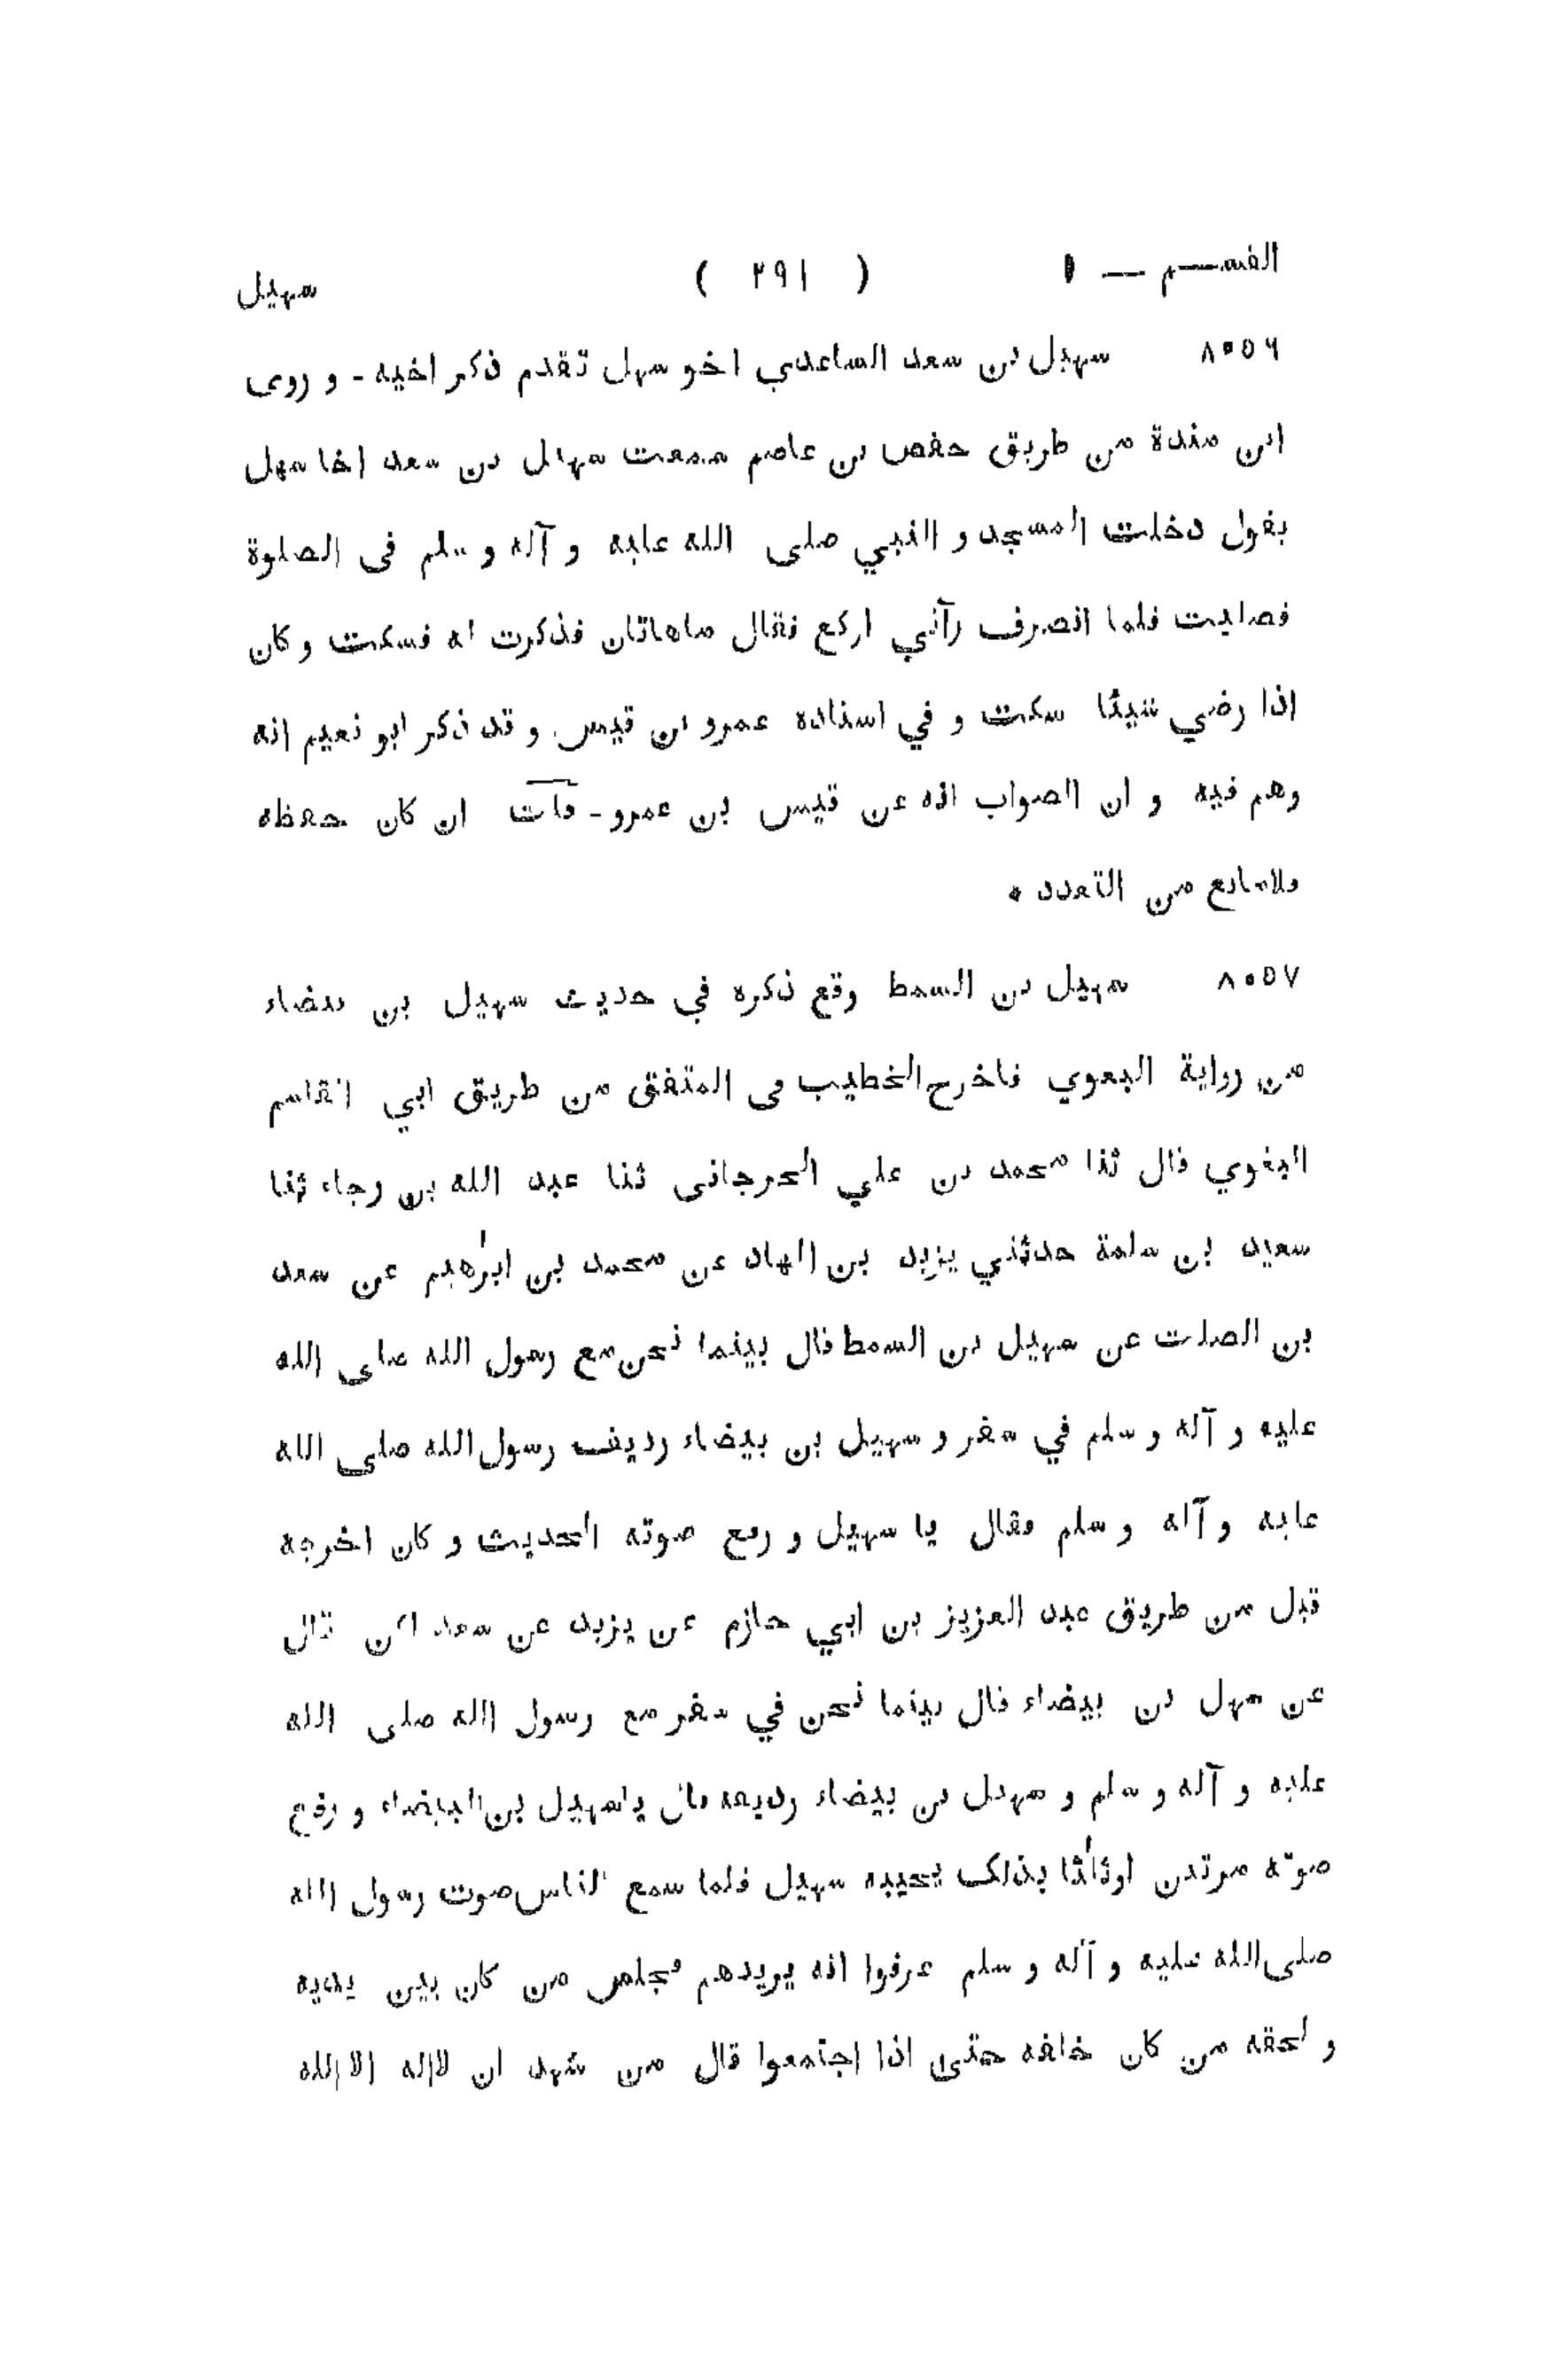 القسـم — ١ ( ٢٩١ ) سهيل
٨٠٥٦ سهيل بن سعد الساعدي اخو سهل تقدم ذكر اخيه - و روى
ابن مندة من طريق حفص بن عاصم سمعت سهيل بن سعد اخا سهل
يقول دخلت المسجد و النبي صلى الله عليه و آله و سلم فى الصلوة
فصليت فلما انصرف رآني اركع فقال ماهاتان فذكرت له فسكت و كان
اذا رضي شيئا سكت و في اسناده عمرو بن قيس و قد ذكر ابو نعيم انه
وهم فيه و ان الصواب انه عن قيس بن عمرو - قلت ان كان حفظه
فلامانع من التعدد •
٨٠٥٧ سهيل بن السمط وقع ذكره في حديث سهيل بن بيضاء
من رواية البغوي فاخرج الخطيب فى المتفق من طريق ابي القاسم
البغوي قال ثنا محمد بن علي الجرجانى ثنا عبد الله بن رجاء ثنا
سعيد بن سلمة حدثني يزيد بن الهاد عن محمد بن ابرٰهيم عن سعد
بن الصلت عن سهيل بن السمط قال بينما نحن مع رسول الله صلى الله
عليه و آله و سلم في سفر و سهيل بن بيضاء رديف رسول الله صلى الله
عليه و آله و سلم فقال يا سهيل و رفع صوته الحديث و كان اخرجه
قبل من طريق عبد العزيز بن ابي حازم عن يزيد عن سعد لكن قال
عن سهل بن بيضاء قال بينما نحن في سفر مع رسول الله صلى الله
عليه و آله و سلم و سهيل بن بيضاء رديفه قال ياسهيل بن البيضاء و رفع
صوته مرتين اوثلٰثا بذلك يجيبه سهيل فلما سمع الناس صوت رسول الله
صلى الله عليه و آله و سلم عرفوا انه يريدهم فجلس من كان بين يديه
و لحقه من كان خلفه حتى اذا اجتمعوا قال من شهد ان لااله الا الله